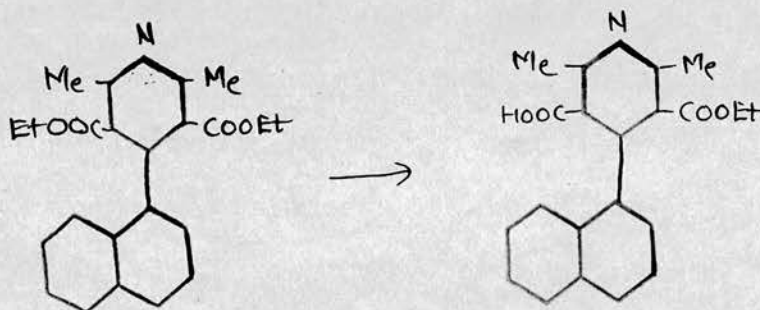 N
Me Me
EtOOC COOEt
N
Me Me
HOOC COOEt